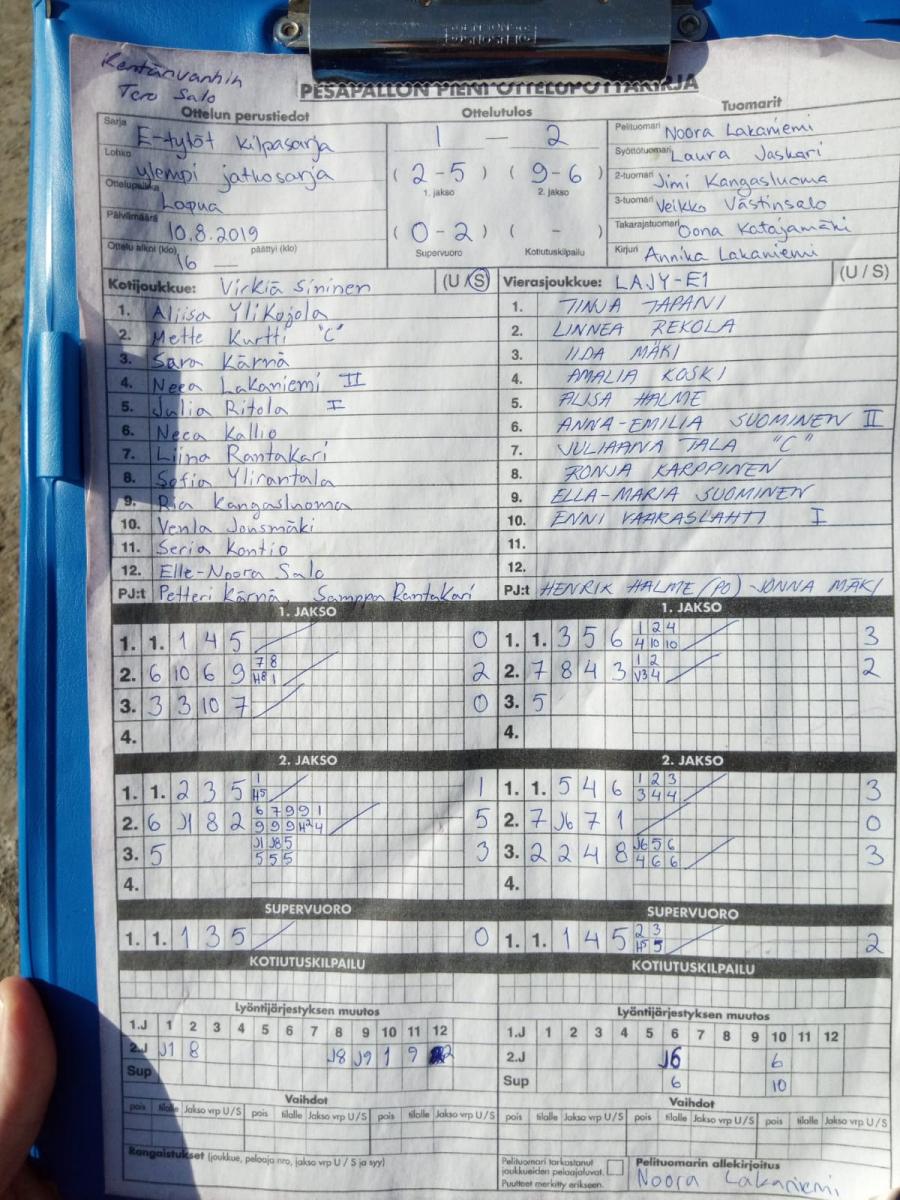 Kentänvanhin
Tero Salo
PESÄPALLON PIENI OTTELUPÖYTÄKIRJA
Ottelun perustiedot
Ottelutulos
Tuomarit
Sarja E-tytöt kilpasarja
Lohko ylempi jatkosarja
Ottelupaikka Loqua
Päivämäärä 10.8.2019
Ottelu alkoi (klo) 16 päättyi (klo)
1 — 2
( 2-5 ) ( 9-6 )
1. jakso 2. jakso
( 0-2 ) ( - )
Supervuoro Kotiutuskilpailu
Pelituomari Noora Lakaniemi
Syöttötuomari Laura Jaskari
2-tuomari Jimi Kangasluoma
3-tuomari Veikko Västinsalo
Takarajatuomari Oona Katajamäki
Kirjuri Annika Lakaniemi
Kotijoukkue: Virkiä Sininen (U/S)
1. Aliisa Ylikojola
2. Mette Kurtti "C"
3. Sara Kärnä
4. Neea Lakaniemi II
5. Julia Ritola I
6. Neea Kallio
7. Liina Rantakari
8. Sofia Ylirantala
9. Ria Kangasluoma
10. Venla Jonsmäki
11. Seria Kontio
12. Elle-Noora Salo
PJ:t Petteri Kärnä, Samppa Rantakari
Vierasjoukkue: LAJY-E1 (U/S)
1. TINJA TAPANI
2. LINNEA REKOLA
3. IIDA MÄKI
4. AMALIA KOSKI
5. ALISA HALME
6. ANNA-EMILIA SUOMINEN II
7. JULIAANA TALA "C"
8. RONJA KARPPINEN
9. ELLA-MARIA SUOMINEN
10. ENNI VAARASLAHTI I
11.
12.
PJ:t HENRIK HALME (PO) JONNA MÄKI
1. JAKSO
1. 1. 1 4 5 0
2. 6 10 6 9 7 8 H8 1 2
3. 3 3 10 7 0
4.
1. JAKSO
1. 1. 3 5 6 1 2 4 4 10 10 3
2. 7 8 4 3 1 2 V3 4 2
3. 5
4.
2. JAKSO
1. 1. 2 3 5 1 H5 1
2. 6 J1 8 2 6 7 9 9 1 9 9 9 H2 4 5
3. 5 J1 J8 5 5 5 5 3
4.
2. JAKSO
1. 1. 5 4 6 1 2 3 3 4 4 3
2. 7 J6 7 1 0
3. 2 2 4 8 J6 5 6 4 6 6 3
4.
SUPERVUORO
1. 1. 1 3 5 0
SUPERVUORO
1. 1. 1 4 5 2 3 H5 5 2
KOTIUTUSKILPAILU
KOTIUTUSKILPAILU
Lyöntijärjestyksen muutos
1.J 1 2 3 4 5 6 7 8 9 10 11 12
2.J J1 8 J8 J9 1 9
Sup
Lyöntijärjestyksen muutos
1.J 1 2 3 4 5 6 7 8 9 10 11 12
2.J J6 6
Sup 6 10
Vaihdot
pois tilalle Jakso vrp U/S pois tilalle Jakso vrp U/S pois tilalle Jakso vrp U/S
Vaihdot
pois tilalle Jakso vrp U/S pois tilalle Jakso vrp U/S pois tilalle Jakso vrp U/S
Rangaistukset (joukkue, pelaaja nro, jakso vrp U / S ja syy)
Pelituomari tarkastanut
joukkueiden pelaajaluvat.
Puutteet merkitty erikseen.
Pelituomarin allekirjoitus
Noora Lakaniemi